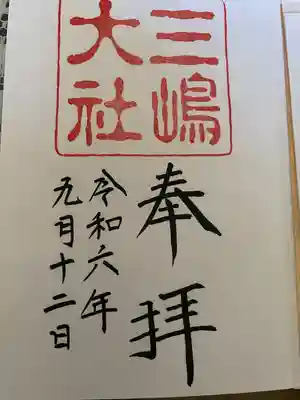 三嶋
大社
奉拝
令和六年
九月十二日